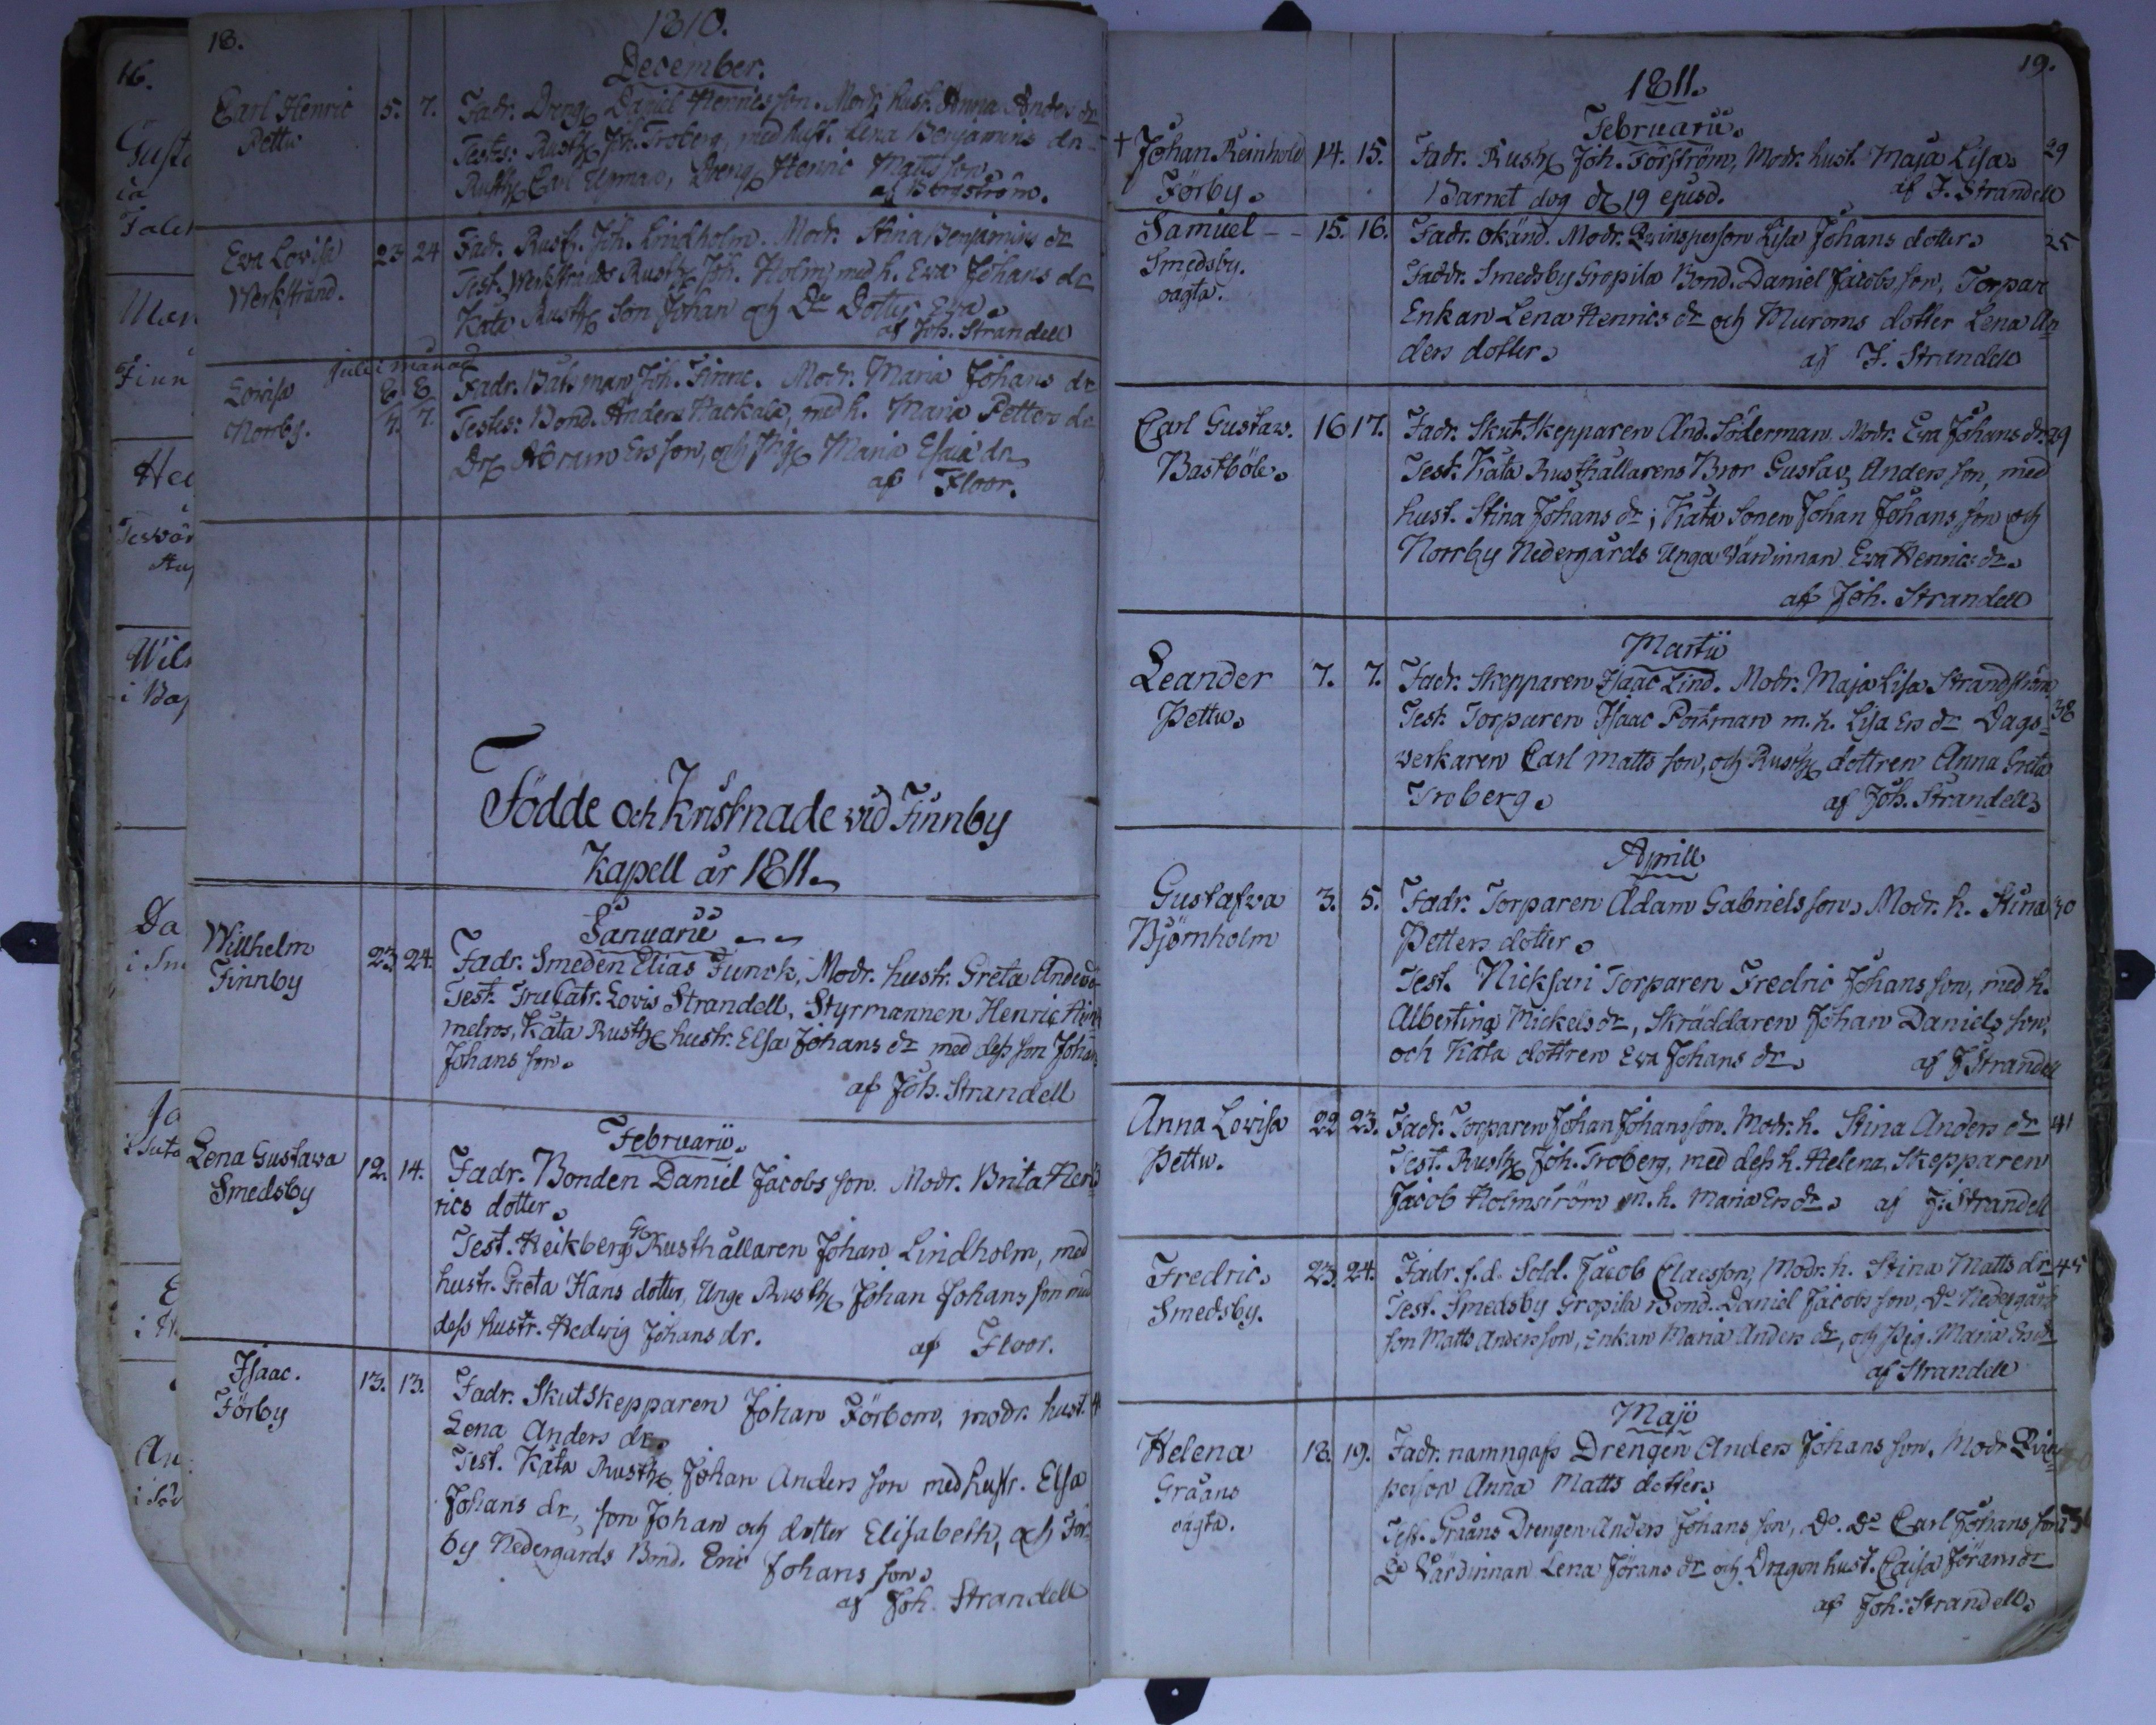 18.
1810.
December.
Carl Henric 5. 7. Fadr. Dreng Daniel Henricsson. Modr. hust. Anna Anders dr
Pettu Testes: Rusth Joh. Troberg, med hust. Lena Benjamins dr
Rusth Carl Upman, Dreng Henric Mattsson.
af Bergström.
Eva Lovisa 23 24 Fadr. Rusth. Joh. Lindholm. Modr. Stina Benjamins dr
Werkstrand. Test. Werkstrands Rusth Joh. Holm, med h. Eva Johans dr
Kåta Rusth son Johan och Do Dotter Eva.
af Joh. Strandell
Julii månad
Lovisa 6/7. 8/7. Fadr. Båtsman Joh. Finne. Modr. Maria Johans dr
Norrby. Testes: Bond. Anders Hackala, med h. Maria Petters dr
Dr Abram Ersson, och Pig Maria Esaiae dr
af Floor.
Födde och Kristnade vid Finnby
Kapell år 1811.
Januarii
Willhelm 23. 24. Fadr. Smeden Elias Funck, Modr. hustr. Greta Anders dr
Finnby Test. Fru Catr. Lovis Strandell, Styrmannen Henric Him
melros, Kåta Rusth hustr. Elsa Johans dr med dess son Johan
Johans son.
af Joh. Strandell
Februarii.
Lena Gustawa 12. 14. Fadr. Bonden Daniel Jacobs son. Modr. Brita Hen
Smedsby rics dotter.
Test. Heikbergs Rusthållaren Johan Lindholm, med
hustr. Greta Hans dotter, Unge Rusth Johan Johans son med
dess hustr. Hedwig Johans dr. af Floor.
Isaac. 13. 13. Fadr. Skutskepparen Johan Förbom, modr. hust.
Förby Lena Anders dr.
Test. Kåta Rusth Johan Anders son med hustr. Elsa
Johans dr, son Johan och dotter Elisabeth, och För
by Nedergårds Bond. Eric Johans son.
af Joh. Strandell
19.
1811.
Februarii.
† Johan Reinhold 14. 15. Fadr. Rusth Joh. Törström, Modr. hust. Maja Lisa. 29
Förby. Barnet dog d 19 ejusd. af J. Strandell
Samuel 15. 16. Fadr. okänd. Modr. Qvinsperson Lisa Johans dotter. 25
Smedsby. Faddr. Smedsby Gropila Bond. Daniel Jacobs son, Torpar
oagta. Enkan Lena Henrics dr och Muroms dotter Lena An
ders dotter. af J. Strandell
Carl Gustav. 16 17. Fadr. Skutskepparen And. Söderman. Modr. Eva Johans dr. 29
Bastböle. Test. Kåta Rusthållarens Bror Gustav Anders son, med
hust. Stina Johans dr; Kåta Sonen Johan Johans son och
Norrby Nedergårds Unga Värdinnan Eva Henrics dr.
af Joh. Strandell
Martii
Leander 7. 7. Fadr. Skepparen Isaac Lind. Modr. Maja Lisa Strandström
Pettu. Test. Torparen Isaac Portman m. h. Lisa Ers dr Dags- 38
verkaren Carl Matts son, och Rusth dottren Anna Greta
Troberg. af Joh. Strandell.
Aprill
Gustafva 3. 5. Fadr. Torparen Adam Gabriels son. Modr. h. Stina 30
Björnholm Petters dotter.
Test. Nicksari Torparen Fredric Johans son, med h.
Albertina Mickels dr, Skräddaren Johan Daniels son,
och Kåta dottren Eva Johans dr. af J Strandell
Anna Lovisa 22 23. Fadr. Torparen Johan Johansson. Modr. h. Stina Anders dr 41
Pettu. Test. Rusth Joh. Troberg, med dess h. Helena, Skepparen
Jacob Holmström m. h. Maria Ers dr. af J. Strandell
Fredric. 23. 24. Fadr. f.d. Sold. Jacob Claesson, Modr. h. Stina Matts dr 45
Smedsby. Test. Smedsby Gropila Bond. Daniel Jacobs son, Do Nedergårds
son Matts Anders son, Enkan Maria Anders dr, och Pig. Maria Ers dr
af Strandell
Maji
Helena 18. 19. Fadr. namngafs Drengen Anders Johans son. Modr Qvins
Gråäns person Anna Matts dotter.
oägta. Test. Gråäns Drengen Anders Johans son, Do. Do Carl Johans son
Do Värdinnan Lena Jörans dr och Dragon hust. Caisa Jörans dr
af Joh. Strandell.